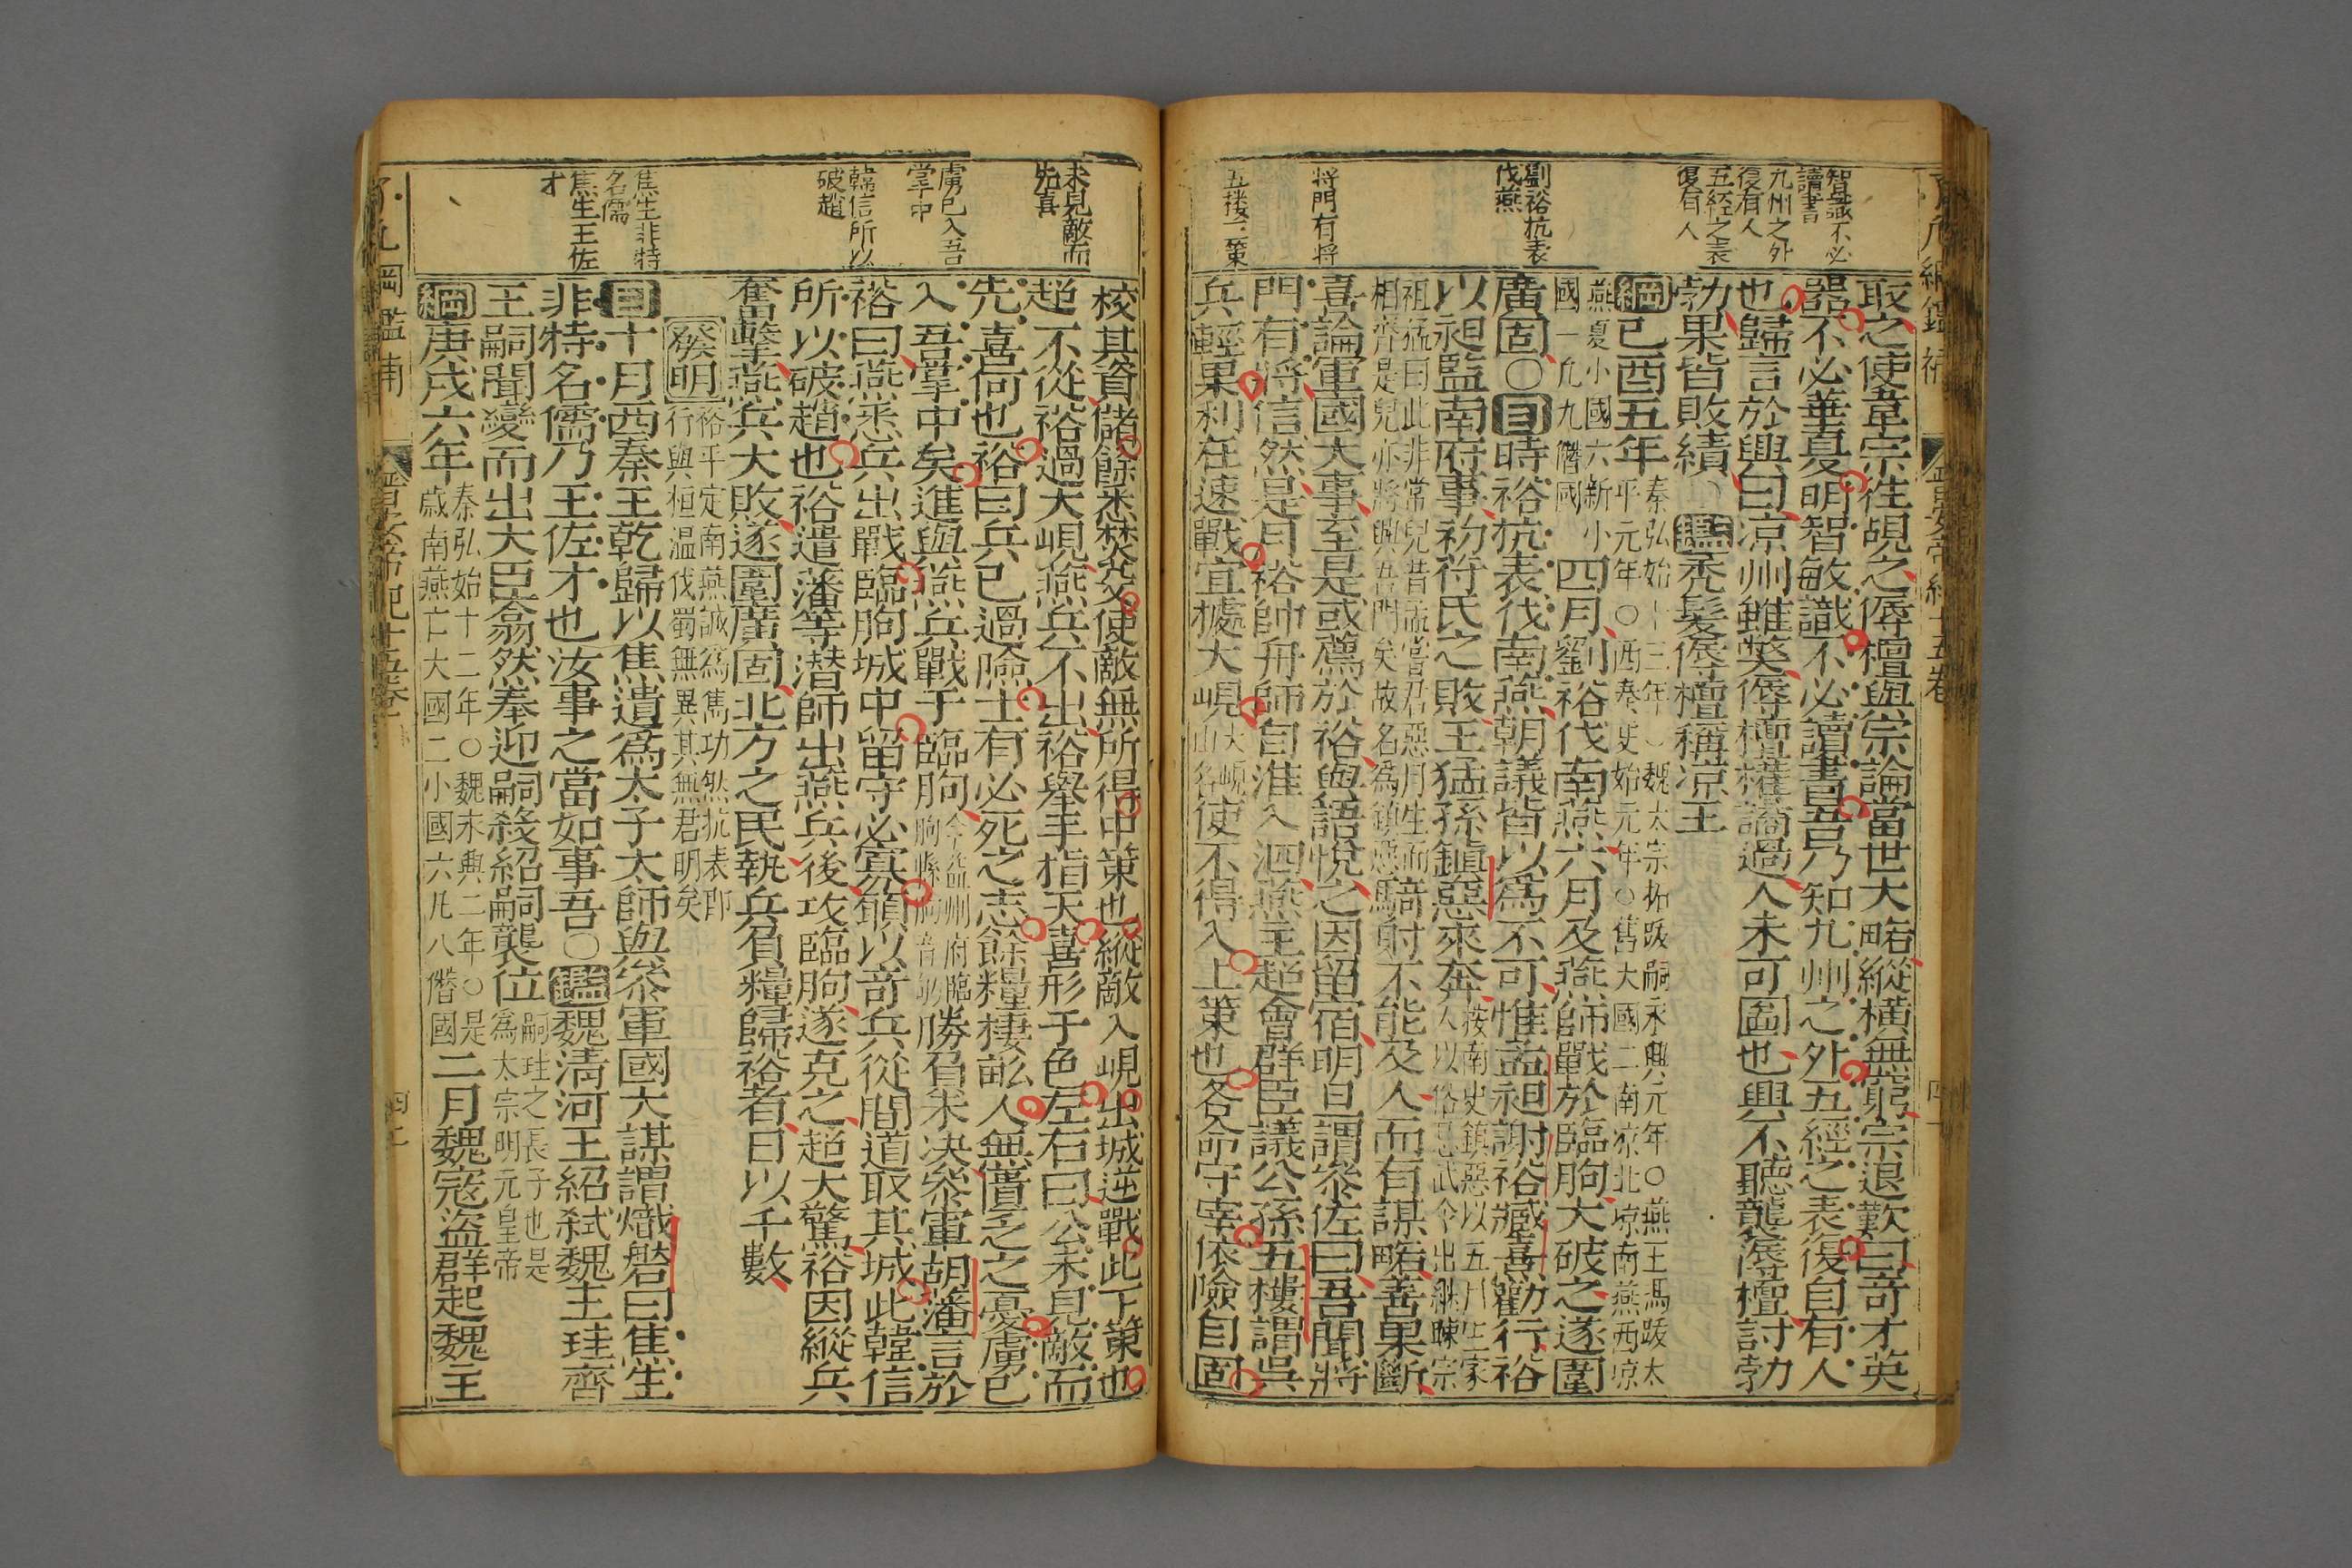 智識不必
讀書
九州之外
復有人
五經之表
復有人
劉裕抗表
伐燕
將門有將
五樓三策
取之使韋宗往覘之傉檀與宗論當世大略縱橫無窮宗退歎曰奇才英
器不必華夏明智敏識不必讀書吾乃知九州之外五經之表復自有人
也歸言於興曰凉州雖獘傉檀權譎過人未可圖也興不聽襲傉檀討勃
勃果皆敗績鑑禿髮傉檀稱凉王
綱己酉五年
秦弘始十三年○魏太宗拓跋嗣永興元年○燕王馮跋太
平元年○西秦更始元年○舊大國二南凉北凉南燕西凉
燕夏小國六新小
國一凡九僭國
四月劉裕伐南燕六月及燕師戰於臨朐大破之遂圍
廣固○目時裕抗表伐南燕朝議皆以爲不可惟孟昶謝裕臧熹勸行裕
以昶監南府事初苻氏之敗王猛孫鎭惡來奔
按南史鎮惡以五月生家
人以俗忌武令出繼踈宗
祖猛曰此非常兒昔孟嘗君惡月生而
相齊是兒亦將興吾門矣故名爲鎮惡
騎射不能及人而有謀略善果斷
喜論軍國大事至是或薦於裕與語悅之因留宿明旦謂參佐曰吾聞將
門有將信然是月裕帥舟師自淮入泗燕主超會群臣議公孫五樓謂吳
兵輕果利在速戰宜據大峴
大峴
山名
使不得入上策也各命守宰依險自固
未見敵而
先喜
虜已入吾
掌中
韓信所以
破趙
焦生非特
名儒
焦生王佐
才
校其資儲餘悉焚芟使敵無所得中策也縱敵入峴出城逆戰此下策也
超不從裕過大峴燕兵不出裕舉手指天喜形于色左右曰公未見敵而
先喜何也裕曰兵已過險士有必死之志餘糧棲畝人無匱乏之憂虜已
入吾掌中矣進與燕兵戰于臨朐
今益州府臨
朐縣朐音劬
勝負未决參軍胡藩言於
裕曰燕悉兵出戰臨朐城中留守必寡願以奇兵從間道取其城此韓信
所以破趙也裕遣藩等潜師出燕兵後攻臨朐遂克之超大驚裕因縱兵
奮擊燕兵大敗遂圍廣固北方之民執兵負糧歸裕者日以千數
發明
裕平定南燕誠爲雋功然抗表郎
行與桓温伐蜀無異其無君明矣
目十月西秦王乾歸以焦遺爲太子太師與參軍國大謀謂熾磐曰焦生
非特名儒乃王佐才也汝事之當如事吾○鑑魏淸河王紹弑魏主珪齊
王嗣聞變而出大臣翕然奉迎嗣殺紹嗣襲位
嗣珪之長子也是
爲太宗明元皇帝
綱庚戌六年
秦弘始十二年○魏永興二年○是
歲南燕亡大國二小國六凡八僭國
二月魏寇盜群起魏主